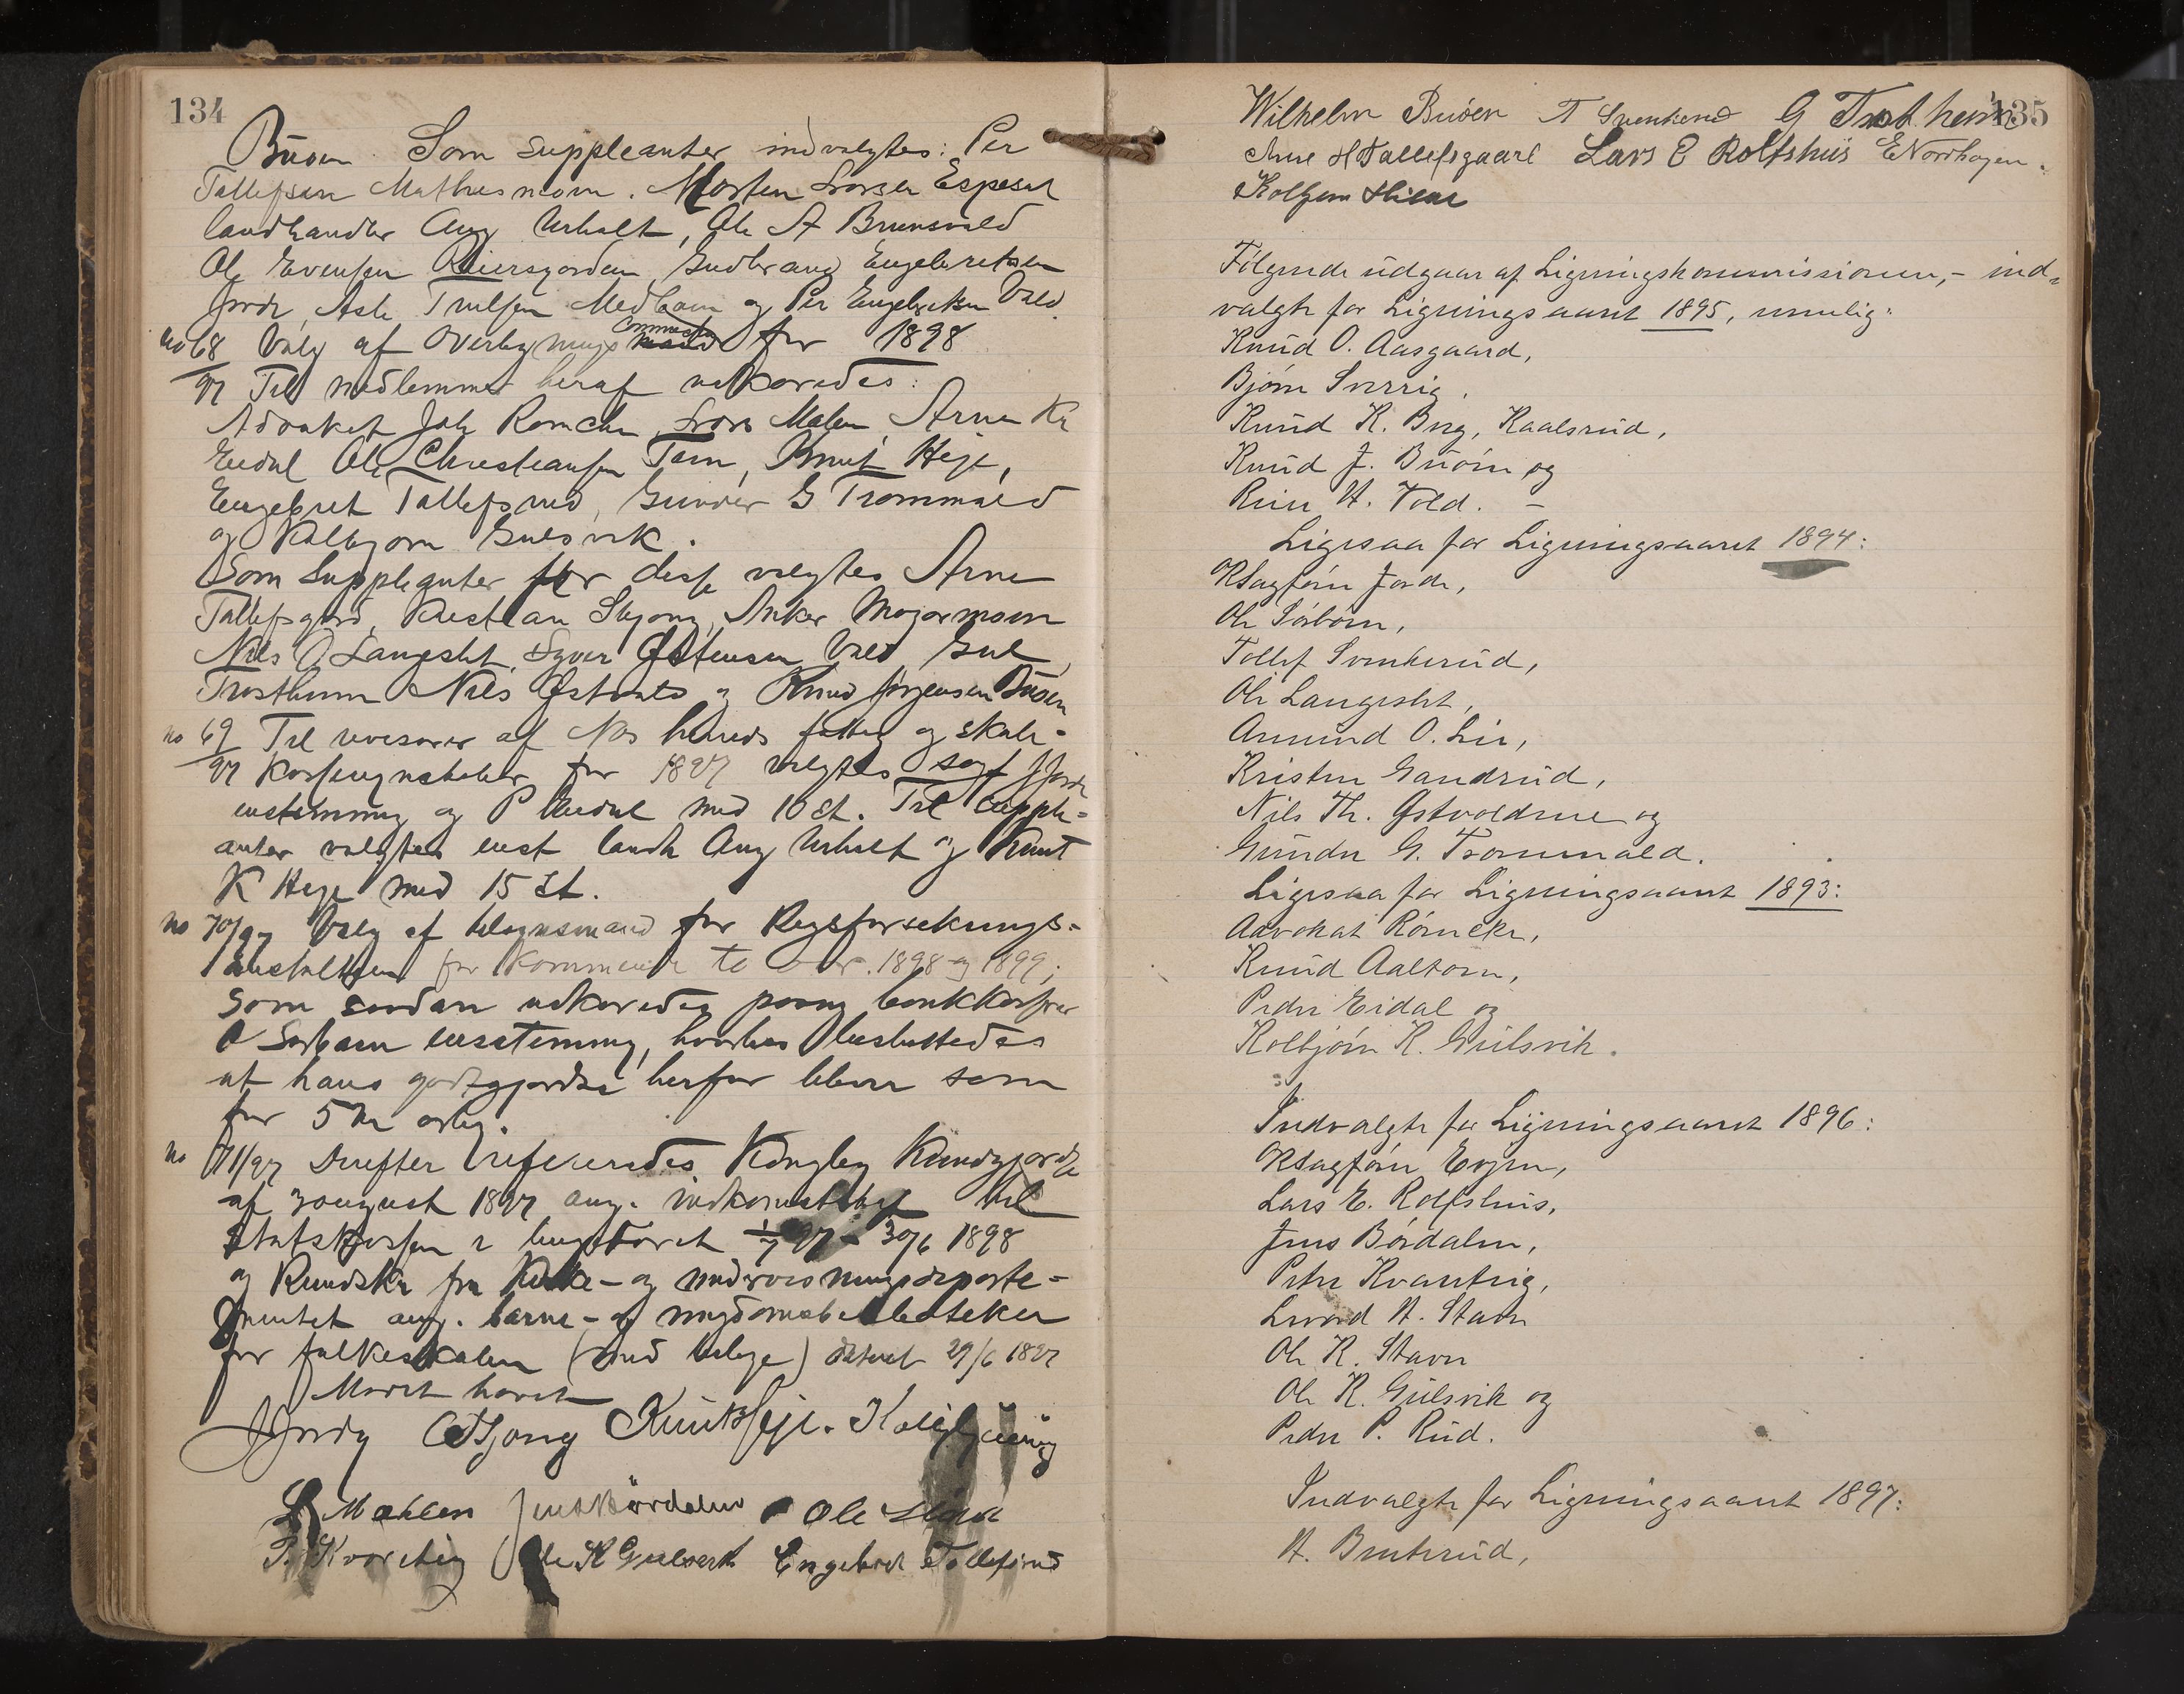 134
Buøen Som Suppleanter indvalgtes: Per
Tollefsen Mathusmoen. Morten Larsen Espeset
landhandler Aug Urholt, Ole A Brunsvold
Ole Evensen Reiersgorden, Gudbrand Engebretsen
Jorde, Asle Trulsen Medboen og Per Engebretsen Vold.
no 68 Valg af Overligningscommission for 1898
97 Til medlemmer heraf udkoredes:
Advokat Joh Romcke, Lars Malen, Arne Kr
Eidal Ole Christiansen Tørn, Knut Heje,
Engebret Tollefsrud, Gunder G Trommald
og Kolbjorn Gulsvik.
Som Suppleanter for disse valgtes Arne
Tollefsgard, Kristian Skjong, Anker Mojormoen
Nils O Langeslet, Syver Østensen Vold, Gul
Trostheim Nils Østvolds og Knud Jørgensen Buøen
no 69 Til revisorer af Nes herreds fattig og skole-
97 kasseregnskaber for 1897 valgtes sogf Jorde
enstemmig og P Eidal med 10 st. Til supple-
anter valgtes enst landh Aug Urholt og Knut
K Heje med 15 St.
no 70/97 Valg af tilsynsmand for Rigsforsikrings-
anstalten for kommende to aar. 1898 og 1899;
som saadan udkoredes paany bankkasserer
O Sorbøen eensstemmig, hvorhos besluttedes
at hans godtgjorelse herfor bliver som
for 5 Kr aarlig.
no 71/97 Derefter refereredes Kongelig Kundgjorelse
af 3 august 1897 ang. indkomstskat til
Statskassen i budgetaaret 1/7 97 – 30/6 1898
og Rundskr fra Kirke- og undervisningsdeparte-
mentet ang. barne- og ungdomsbibliotheker
for folkeskolen (med bilage) dateret 29/6 1897
Modet hævet
Jorde OSkjong Knut Heje.
L Mahlen Jens Bördalen Ole
P. Kvarstig Ole K Gulsvik Engebret Tollefsrud
135
Wilhelm Buöen T Svenkerud G Trostheim
Arne H Tollefsgaard Lars E Rolfshus E Nordhagen.
Følgende udgaar af Ligningskommissionen, – ind-
valgte for Ligningsaaret 1895, nemlig:
Knud O. Aasgaard,
Bjørn Sverrig,
Knud K. Brog, Kaalsrud,
Knud J. Buöen og
Reier H. Vold. –
Ligesaa for Ligningsaaret 1894:
Thorbjørn Jorde,
Ole Sörböen,
Tollef Svenkerud,
Ole Langeslet,
Amund O. Lie,
Kristen Gandrud,
Nils Th. Østvoldrue og
Gunder G. Trommald.
Ligesaa for Ligningsaaret 1893:
Advokat Römcke,
Knud Aaltorn,
Peder Eidal og
Kolbjörn K. Gulsvik.
Indvalgte for Ligningsaaret 1896:
Lars E. Rolfshus,
Jens Bördalen,
Peder Kvarstig,
Levord H. Stavn
Ole K. Stavn
Ole K. Gulsvik og
Peder P. Rud.
Indvalgte for Ligningsaaret 1897:
H. Bruterud,